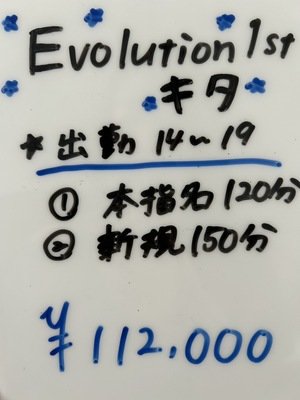 Evolution 1st
キタ
* 出勤 14〜19
① 本指名 120分
② 新規 150分
¥112,000